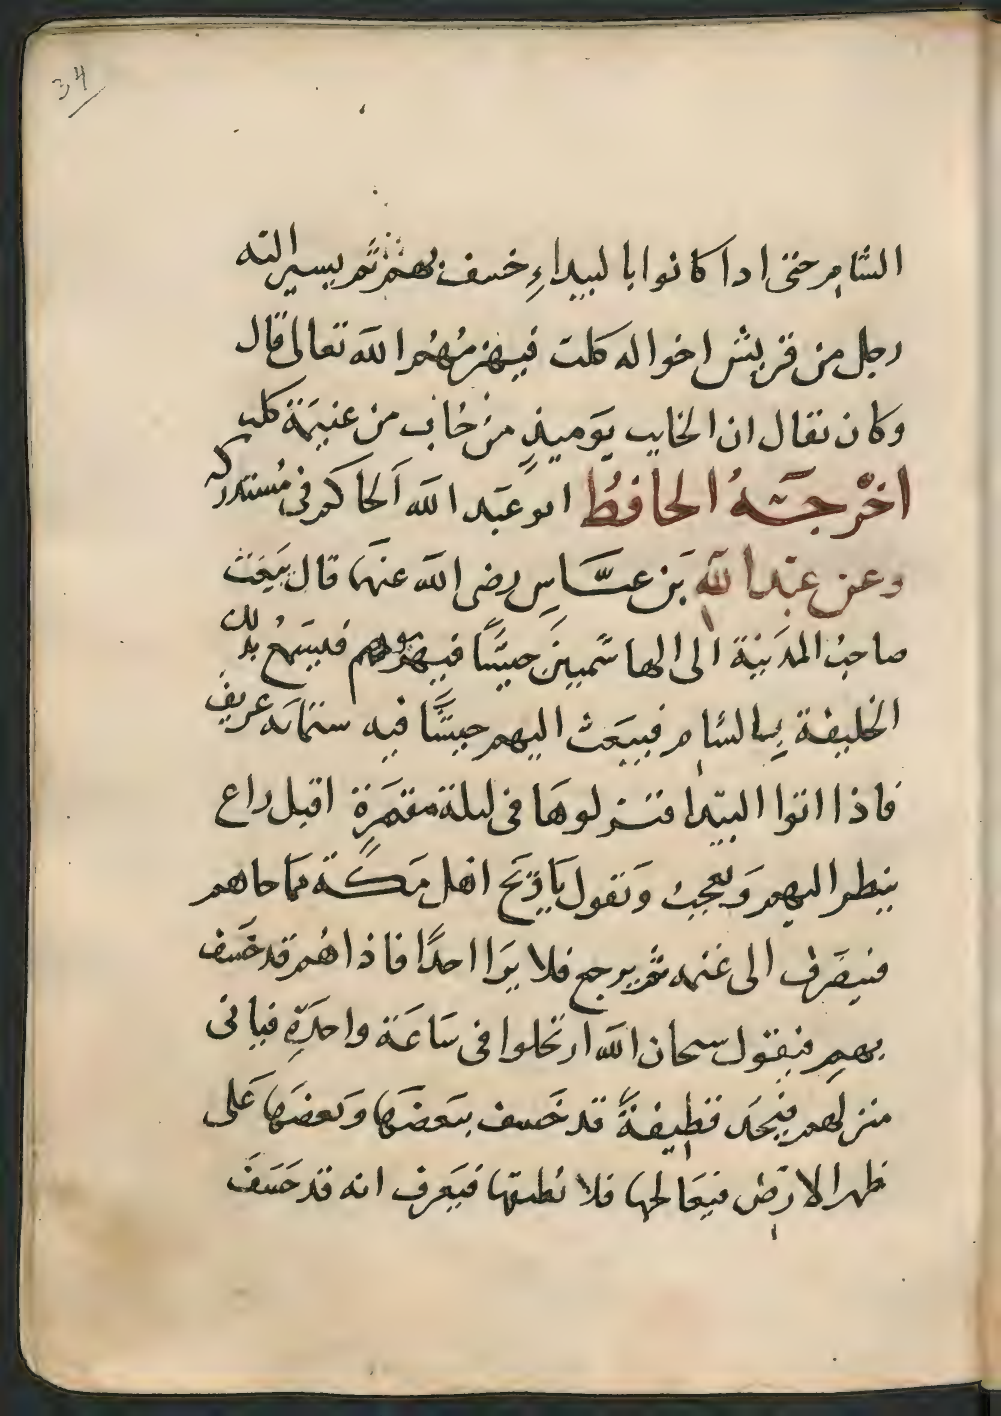 34
الشام حتى ادا كانوا بالبيداءِ خسف بهم ثم يسير اليه
رجل من قريش اخواله كلب فيهزمُهُم الله تعالى قال
وكان يقال ان الخايب يَوميذٍ من خاب من غنيمَة كلب
اخْرجَهُ الحافظُ ابو عَبد الله الحاكم فى مُستدركه
وعن عبْد الله بَن عبَّاسٍ رضى الله عنهَما قال يَبعَث
صاحبُ المدَينة الى الهاشميينَ جيشًا فيهزموهم فيسَمعُ بذلك
الخليفة بالشام فيبعَث اليهم جيشًا فيه ستمايه عريف
فاذا اتوا البيدا فنزلوهَا فى ليلة مقمَرةٍ اقبل راع
ينظر اليهم وَيعجبُ وَيقول يَا ويَح اهل مَكة مَا جاهم
فينصَرف الى غنمه ثم يرجع فلا يَرا احدًا فاذا هُم قد خسَف
بهمِ فيقول سبحان الله ارتحلوا فى سَاعَة واحدَةٍ فياتى
منزلهم فيجَد قطيفةً قد خَسف ببَعضهَا وَبعضهَا عَلى
ظهر الارض فيعَالجها فلا يُطيقها فيَعرف انه قد خسَفَ